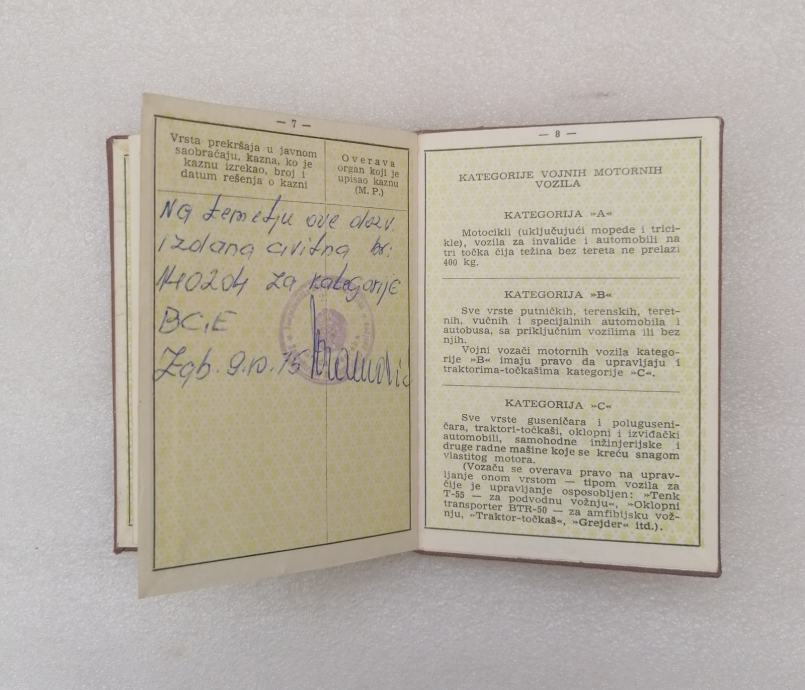 — 7 —
Vrsta prekršaja u javnom
saobraćaju, kazna, ko je
kaznu izrekao, broj i
datum rešenja o kazni
Overava
organ koji je
upisao kaznu
(M. P.)
Na temelju ove dozv.
izdana civilna br:
140204 za kategorije
BC,E
Zgb. 9.10.75
— 8 —
KATEGORIJE VOJNIH MOTORNIH
VOZILA
KATEGORIJA »A«
Motocikli (uključujući mopede i trici-
kle), vozila za invalide i automobili na
tri točka čija težina bez tereta ne prelazi
400 kg.
KATEGORIJA »B«
Sve vrste putničkih, terenskih, teret-
nih, vučnih i specijalnih automobila i
autobusa, sa priključnim vozilima ili bez
njih.
Vojni vozači motornih vozila katego-
rije »B« imaju pravo da upravljaju i
traktorima-točkašima kategorije »C«.
KATEGORIJA »C«
Sve vrste guseničara i poluguseni-
čara, traktori-točkaši, oklopni i izviđački
automobili, samohodne inžinjerijske i
druge radne mašine koje se kreću snagom
vlastitog motora.
(Vozaču se overava pravo na uprav-
ljanje onom vrstom — tipom vozila za
čije je upravljanje osposobljen: »Tenk
T-55 — za podvodnu vožnju«, »Oklopni
transporter BTR-50 — za amfibijsku vož-
nju, »Traktor-točkaš«, »Grejder« itd.).